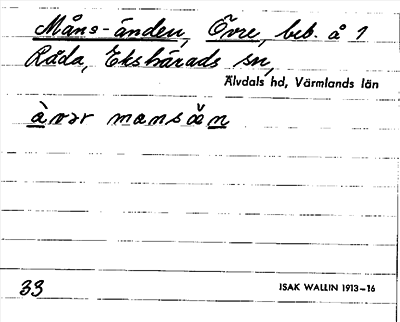 Måns-änden, Övre, beb. å 1
Råda, Ekshärads sn,
Älvdals hd, Värmlands län
àvər mansä̆n
33
ISAK WALLIN 1913–16